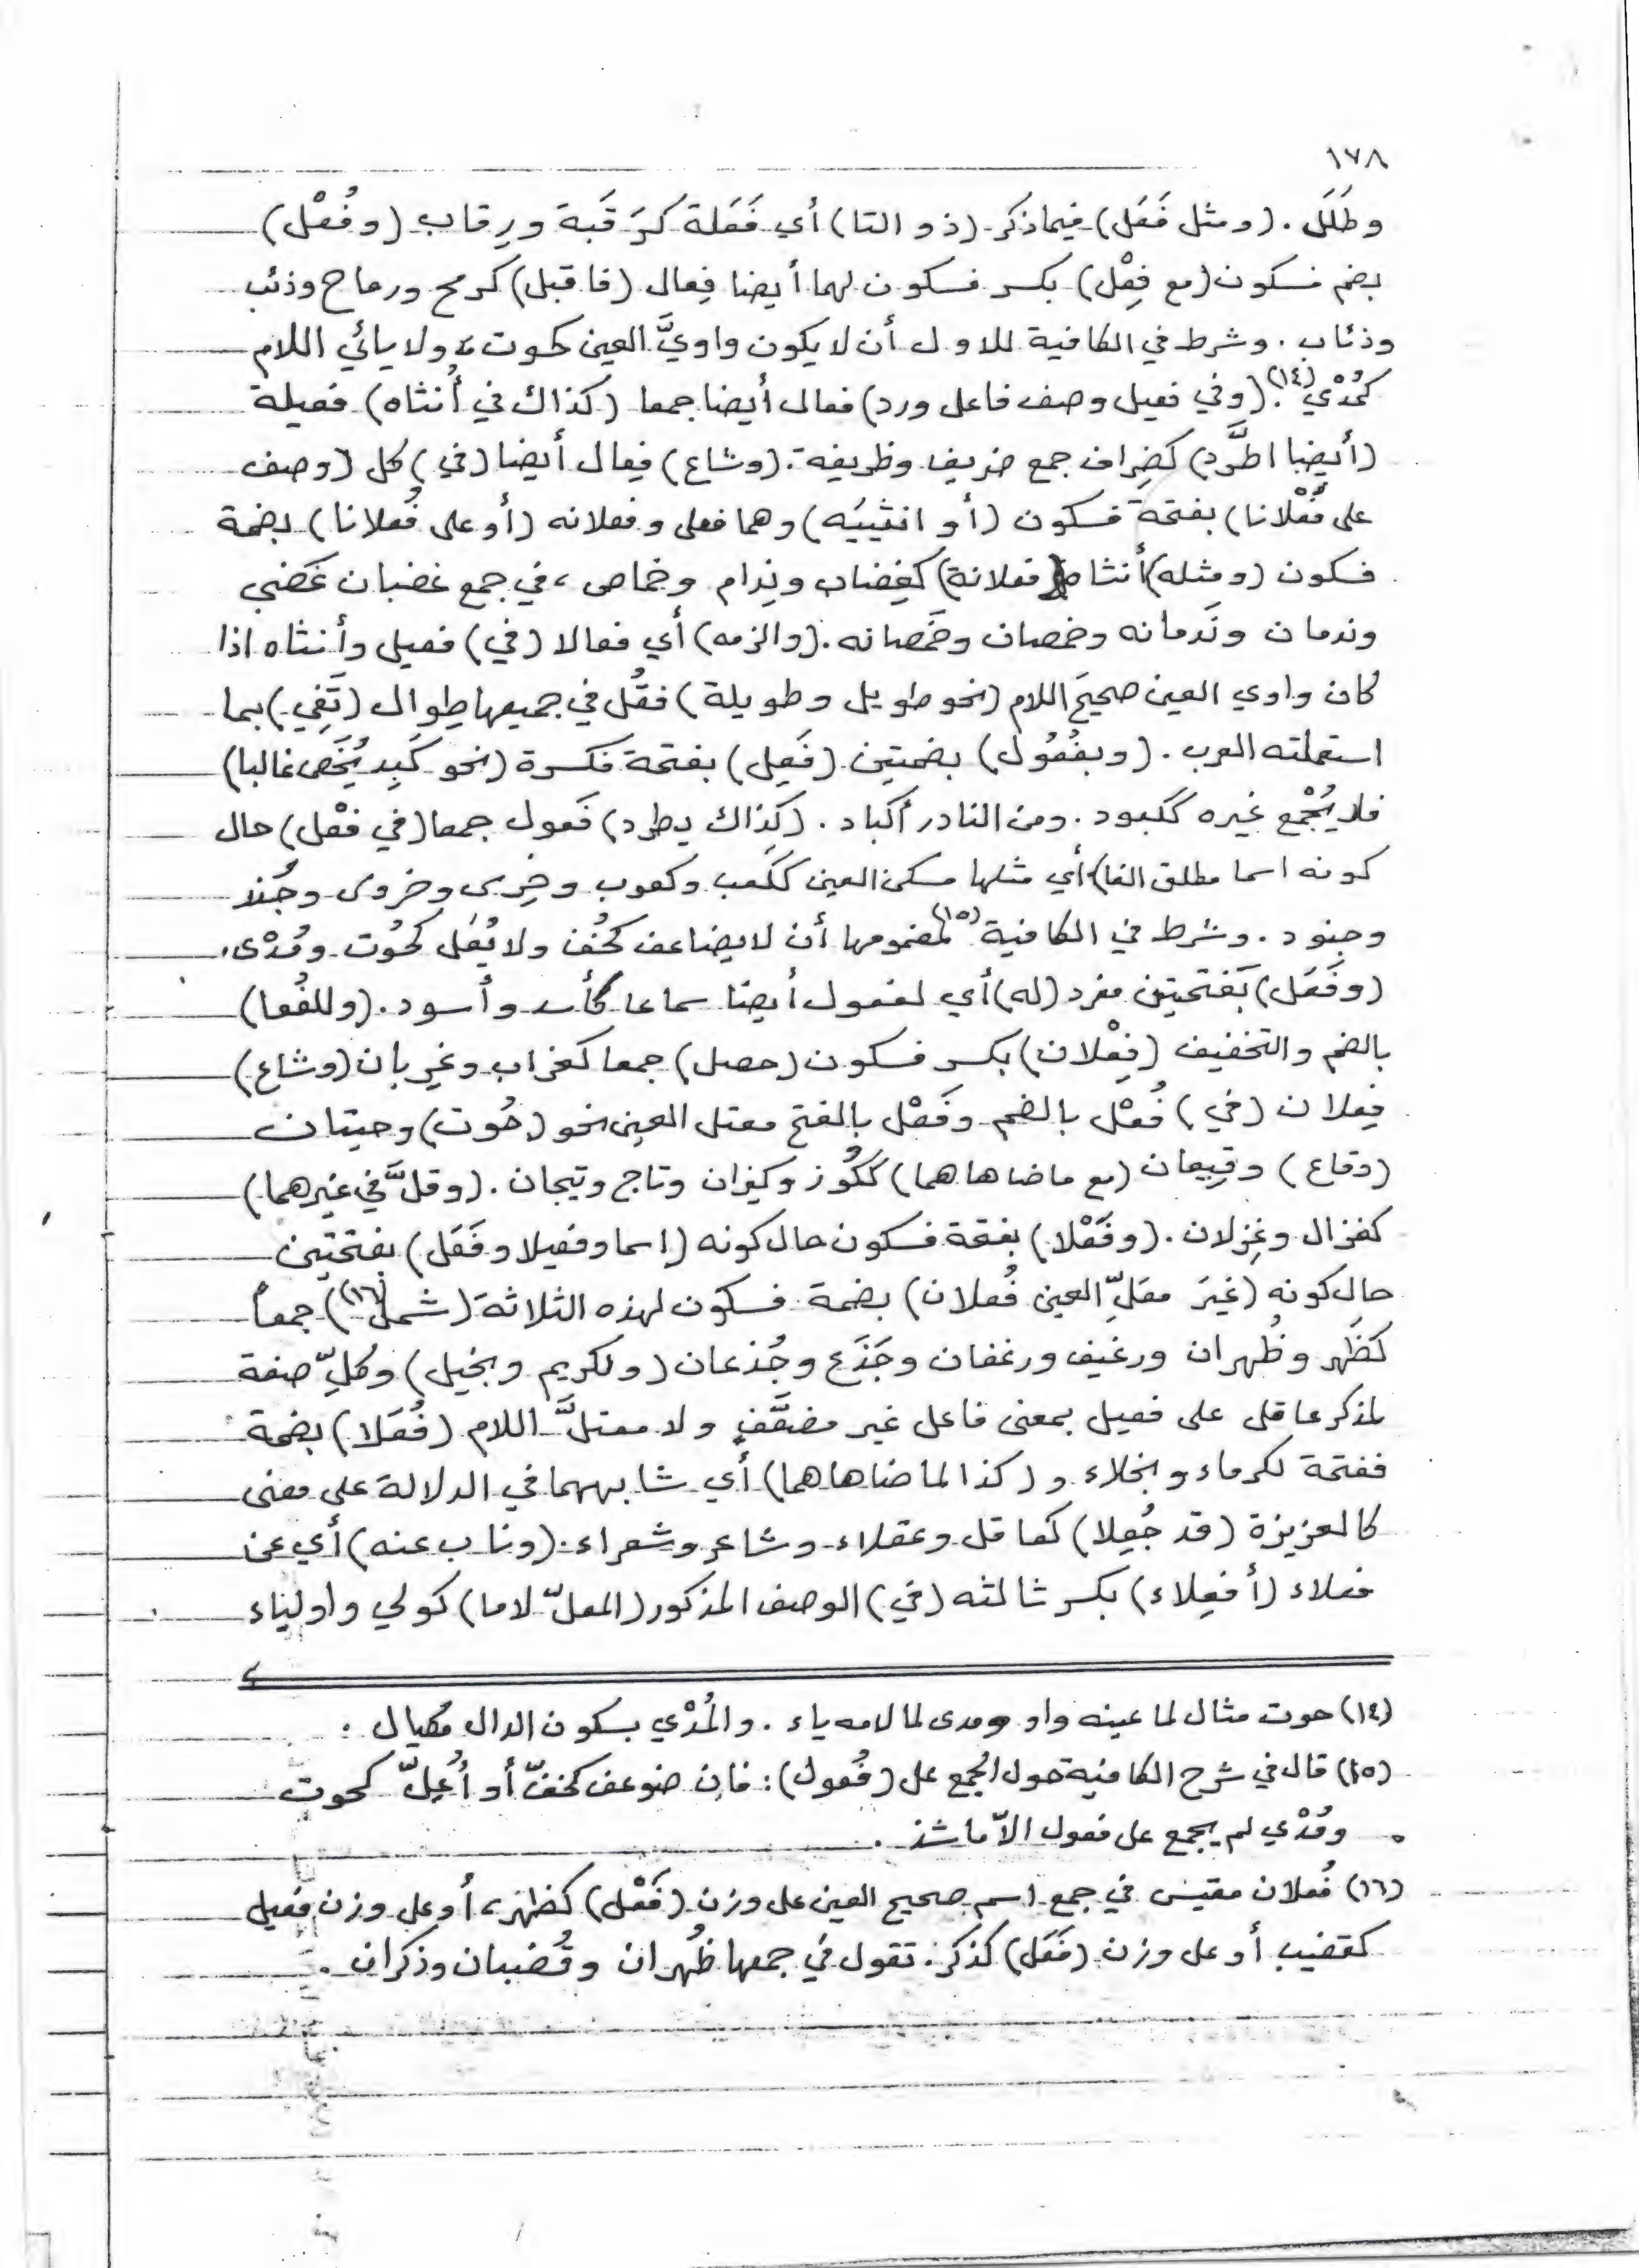 ١٧٨
وطَلَل . (ومثل فَعَل) فيما ذكر (ذو التا) أي فَعَلة كرَقَبة ورِقاب (وفُعْل)
بضم فسكون (مع فِعْل) بكسر فسكون لهما أيضا فِعال (فاقبل) كرمح ورماح وذئب
وذئاب . وشرط في الكافية للاول أن لا يكون واويَّ العين كحوت ، ولا يائي اللام
كمُدْي(١٤). (وفي فعيل وصف فاعل ورد) فعال أيضا جمعا (كذاك في أُنثاه) فعيلة
(أيضا اطَّرد) كضِراف جمع ضريف وظريفة . (وشاع) فِعال أيضا (في) كل (وصف
على فَعْلانا) بفتحة فسكون (أو انثييَه) وهما فعلى وفعلانه (أو على فُعلانا) بضمة
فسكون (ومثله) أنثاه (فعلانة) كغِضاب ونِدام وخماص ، في جمع غضبان غَضبى
وندمان ونَدمانه وخمصان وخَمصانه . (والزمه) أي فعالا (في) فعيل وأنثاه اذا
كان واوي العين صحيحَ اللام (نحو طويل وطويلة) فقُل في جميعها طِوال (تَفِي) بما
استعملته العرب . (وبفُعُول) بضمتين (فَعِل) بفتحة فكسرة (نحو كَبِد يُخَص غالبا)
فلا يُجْمع غيره ككبود . ومن النادر أكباد . (كذاك يطرد) فَعول جمعا (في فعْل) حال
كونه اسما مطلق الفا) أي مثلها مسكن العين ككَعب وكعوب وضِرس وضروس وجُند
وجنود . وشرط في الكافية(١٥) لمضمومها أن لا يضاعف كخُف ولا يُعَل كحُوت ومُدْى ،
(وفَعَل) بَفتحتين مفرد (له) أي لفعول أيضا سماعا كأسد وأسود . (وللفُعا)
بالضم والتخفيف (فِعْلان) بكسر فسكون (حصل) جمعا كغراب وغِربان (وشاع)
فِعلان (في) فُعْل بالضم وفَعْل بالفتح معتل العين نحو (حُوت) وحيتان
(وقاع) وقِيعان (مع ماضاهاهما) ككُوز وكيزان وتاج وتيجان . (وقلَّ في غيرهما)
كغزال وغِزلان . (وفَعْلا) بفتحة فسكون حال كونه (اسما وفعيلا وفَعَل) بفتحتين
حال كونه (غيَر معَلِّ العين فُعلان) بضمة فسكون لهذه الثلاثة (شمل(١٦)) جمعاً
كظَهر وظُهران ورغيف ورغفان وجَذَع وجُذعان (ولكريم وبخيل) وكلِّ صفة
لمذكر عاقل على فعيل بمعنى فاعل غير مضعَّفٍ ولا معتلَّ اللام (فُعَلا) بضمة
ففتحة لكرماء وبخلاء و (كذا لما ضاهاهما) أي شابههما في الدلالة على معنى
كالغريزة (قد جُعِلا) كعاقل وعقلاء وشاعر وشعراء . (وناب عنه) أي عن
فعلاء (أفعِلاء) بكسر ثالثه (في) الوصف المذكور (المعلّ لاما) كولي واولياء
(١٤) حوت مثال لما عينه واو ومدى لما لامه ياء . والمُدْي بسكون الدال مكيال .
(١٥) قال في شرح الكافية حول الجمع على (فُعول) : فان ضوعف كخفّ أو أُعِلّ كحوت
ومُدْي لم يجمع على فعول الاّ ما شذ .
(١٦) فُعلان مقيس في جمع اسم صحيح العين على وزن (فَعْل) كظهر ، أو على وزن فعيل
كقضيب أو على وزن (فَعَل) كذكر . تقول في جمعها ظُهران وقُضبان وذكران .